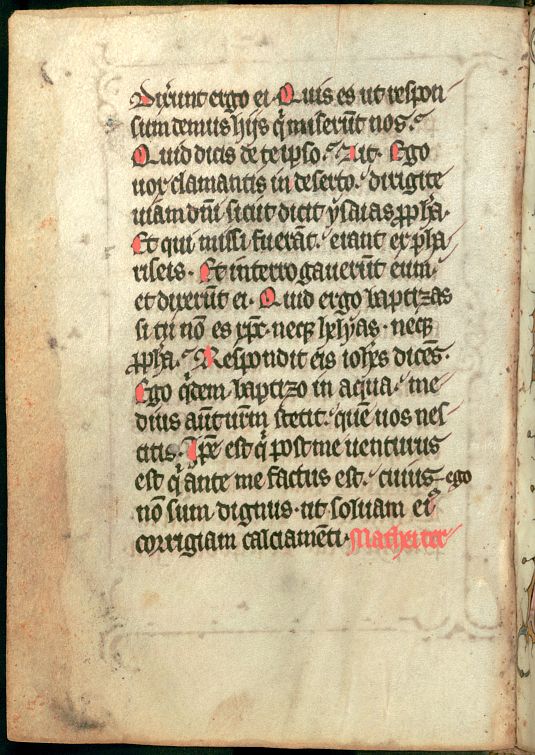 Dixerunt ergo ei. Quis es ut respon
sum demus hijs q̇ miserūt nos.
Quid dicis de te ipso. Ait. Ego
vox clamantis in deserto. dirigite
uiam dn̄i sicut dicit ysaias ꝓph̄a.
Et qui missi fuerāt. erant ex pha
riseis. Et interrogauerūt eum.
et dixerūt ei. Quid ergo baptizas
si tu nō es xp̄c. neqꝫ helyas. neqꝫ
ꝓph̄a. Respondit eis ioh̄es dicēs.
Ego q̇dem baptizo in aqua. me
dius aūt ur̄m stetit. quē uos nes
citis. Ip̄e est q̇ post me uenturus
est q̇ ante me factus est. cuius ego
nō sum dignus. ut soluam ei᷒
corrigiam calciamēti. Mathei